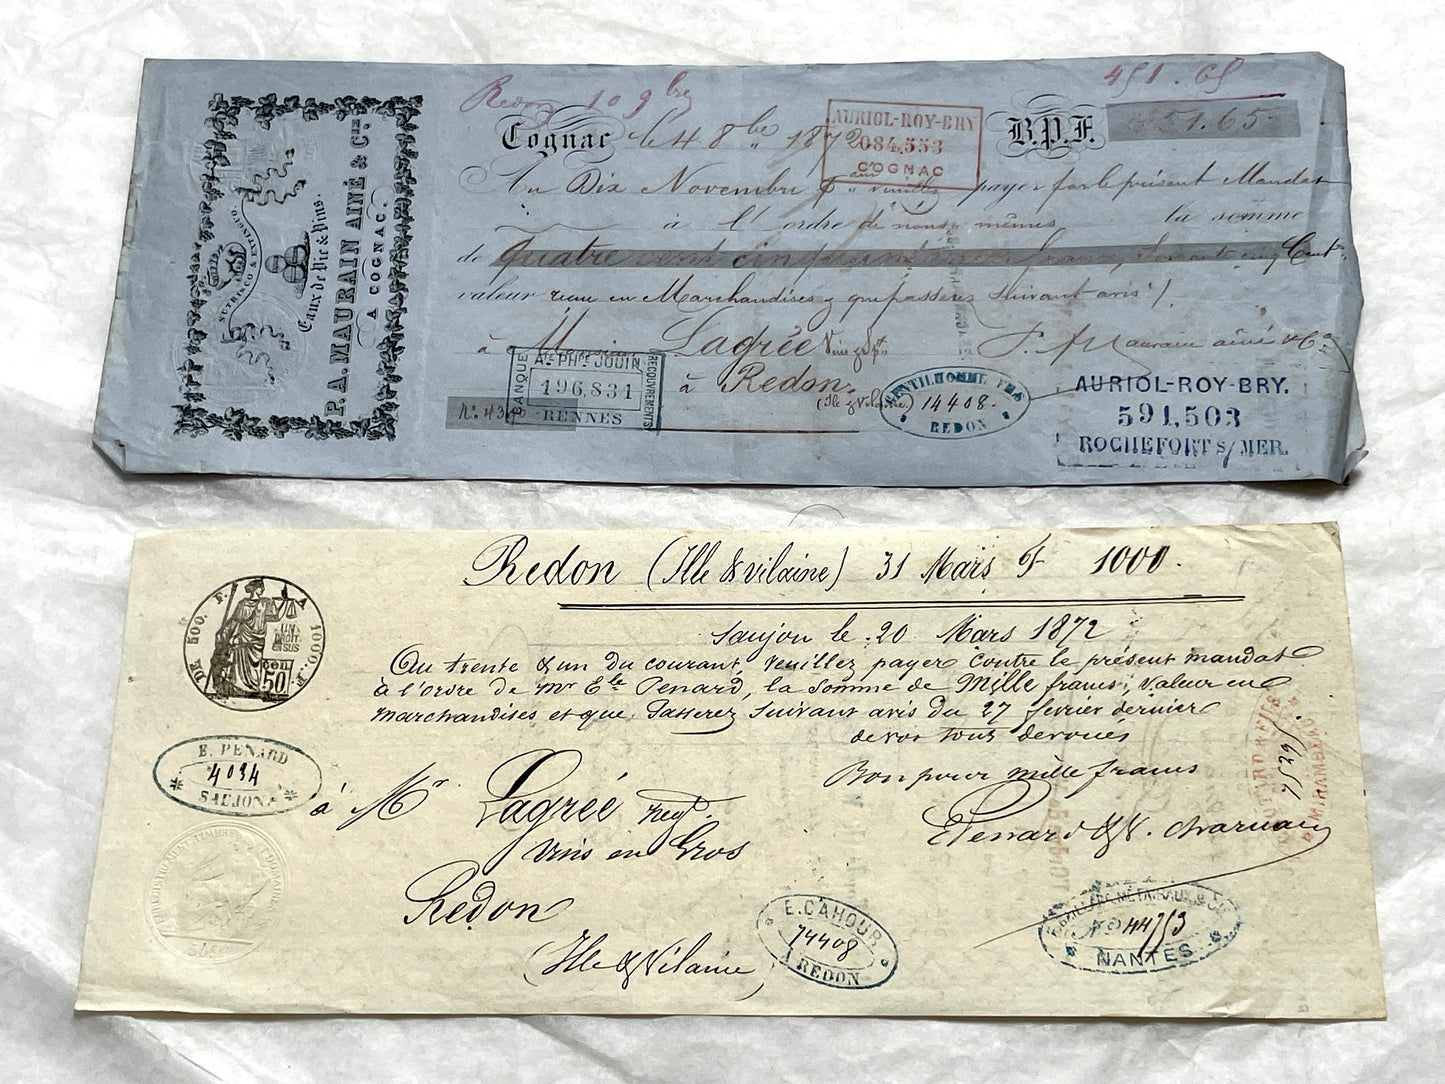 Redon 10 9bre
451.65
Cognac le 4 8bre 1872
B.P.F. 451.65
AURIOL-ROY-BRY
084,553
COGNAC
Au Dix Novembre payer par le présent Mandat
à l'ordre de nous mêmes la somme
de Quatre cent cinquante francs, soixante cinq Cent
valeur reçu en Marchandises que passerez suivant avis
à Lagrée
P. A. Maurain ainé & Cie
à Redon
(Ile & Vilaine)
BANQUE
Ate PHpe JOUIN
196,831
RENNES
RECOUVREMENTS
GENTILHOMME FRES
14408
REDON
AURIOL-ROY-BRY.
591,503
ROCHEFORT S/MER.
NUTRISCO & EXTINGUO
Eaux de Vie & Vins.
P.A. MAURAIN AINÉ & CIE.
A COGNAC.
Redon (Ille & vilaine) 31 Mars F 1000.
DE 500. F. A 1000. F.
UN DROIT EN SUS
50
Saujon le 20 Mars 1872
Au trente & un du courant, veuillez payer contre le présent mandat
à l'ordre de Mr Ele Penard, la somme de Mille francs, valeur en
marchandises et que passerez suivant avis du 27 fevrier dernier
de vos tout dévoués
Bon pour mille francs
E. PENARD
4034
SAUJON
à Mr Lagrée negt
vins en Gros
Redon
(Ille & Vilaine)
E. CAHOUR
74408
A REDON
44753
NANTES
ENREGISTREMENT TIMBRE ET DOMAINES